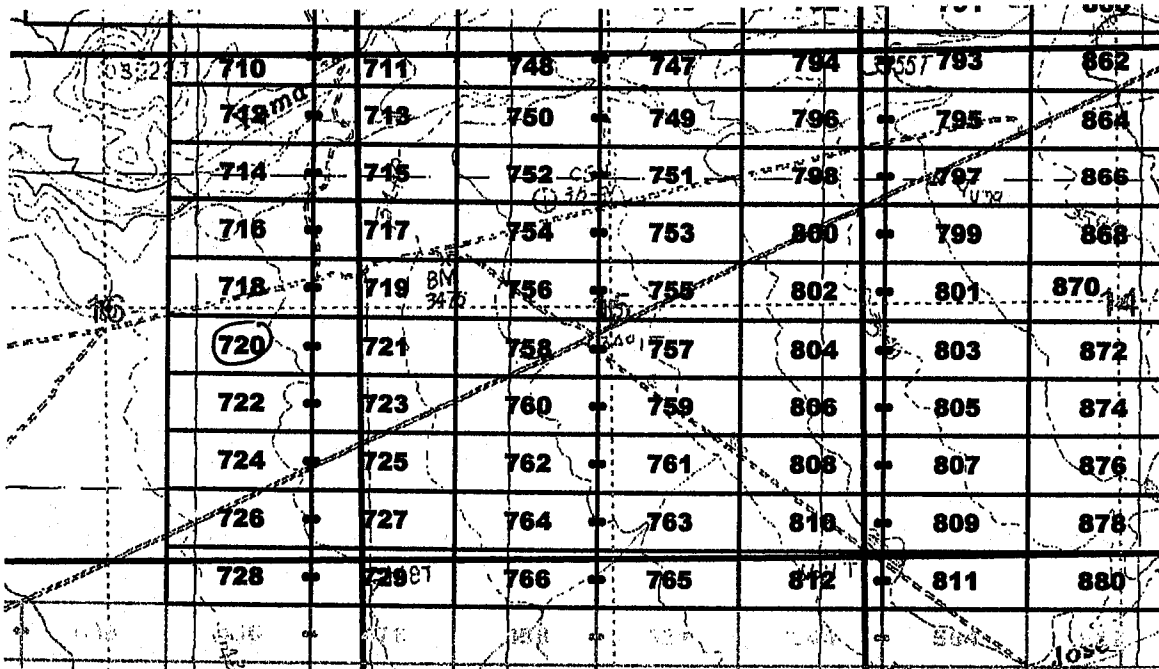 710 711 748 747 794 3555T 793 862
712 713 750 749 796 795 864
714 715 752 751 798 797 866
716 717 754 753 800 799 868
718 719 756 755 802 801 870
BM
3475
16 15 14
720 721 758 757 804 803 872
722 723 760 759 806 805 874
724 725 762 761 808 807 876
726 727 764 763 810 809 878
728 729 766 765 812 811 880
Jose